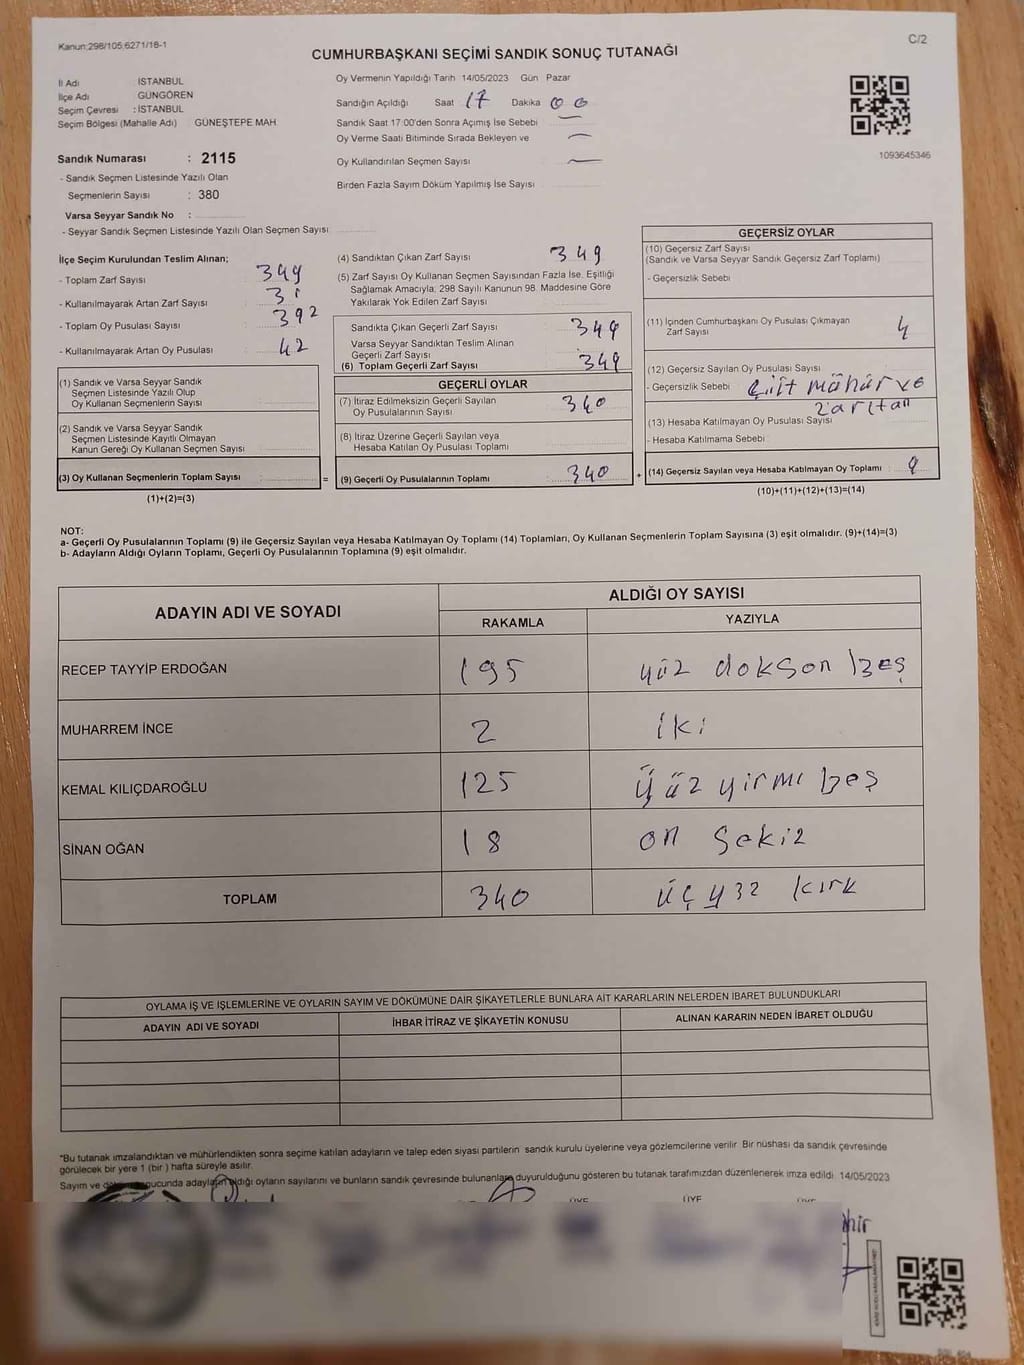 Kanun:298/105;6271/18-1
C/2
CUMHURBAŞKANI SEÇİMİ SANDIK SONUÇ TUTANAĞI
İl Adı : İSTANBUL
İlçe Adı : GÜNGÖREN
Seçim Çevresi : İSTANBUL
Seçim Bölgesi (Mahalle Adı) : GÜNEŞTEPE MAH.
Sandık Numarası : 2115
- Sandık Seçmen Listesinde Yazılı Olan
Seçmenlerin Sayısı : 380
Varsa Seyyar Sandık No :
- Seyyar Sandık Seçmen Listesinde Yazılı Olan Seçmen Sayısı:
Oy Vermenin Yapıldığı Tarih 14/05/2023 Gün Pazar
Sandığın Açıldığı Saat 17 Dakika 00
Sandık Saat 17:00'den Sonra Açımış İse Sebebi
Oy Verme Saati Bitiminde Sırada Bekleyen ve
Oy Kullandırılan Seçmen Sayısı
Birden Fazla Sayım Döküm Yapılmış İse Sayısı
1093645346
İlçe Seçim Kurulundan Teslim Alınan;
- Toplam Zarf Sayısı : 349
- Kullanılmayarak Artan Zarf Sayısı : 31
- Toplam Oy Pusulası Sayısı : 392
- Kullanılmayarak Artan Oy Pusulası : 42
(1) Sandık ve Varsa Seyyar Sandık
Seçmen Listesinde Yazılı Olup
Oy Kullanan Seçmenlerin Sayısı :
(2) Sandık ve Varsa Seyyar Sandık
Seçmen Listesinde Kayıtlı Olmayan
Kanun Gereği Oy Kullanan Seçmen Sayısı :
(3) Oy Kullanan Seçmenlerin Toplam Sayısı :
(1)+(2)=(3)
(4) Sandıktan Çıkan Zarf Sayısı : 349
(5) Zarf Sayısı Oy Kullanan Seçmen Sayısından Fazla İse, Eşitliği
Sağlamak Amacıyla; 298 Sayılı Kanunun 98. Maddesine Göre
Yakılarak Yok Edilen Zarf Sayısı :
Sandıkta Çıkan Geçerli Zarf Sayısı : 349
Varsa Seyyar Sandıktan Teslim Alınan
Geçerli Zarf Sayısı :
(6) Toplam Geçerli Zarf Sayısı : 349
GEÇERLİ OYLAR
(7) İtiraz Edilmeksizin Geçerli Sayılan
Oy Pusulalarının Sayısı : 340
(8) İtiraz Üzerine Geçerli Sayılan veya
Hesaba Katılan Oy Pusulası Toplamı :
= (9) Geçerli Oy Pusulalarının Toplamı : 340 +
GEÇERSİZ OYLAR
(10) Geçersiz Zarf Sayısı
(Sandık ve Varsa Seyyar Sandık Geçersiz Zarf Toplamı) :
- Geçersizlik Sebebi :
(11) İçinden Cumhurbaşkanı Oy Pusulası Çıkmayan
Zarf Sayısı : 4
(12) Geçersiz Sayılan Oy Pusulası Sayısı :
- Geçersizlik Sebebi : Çift mühür ve
zarftan
(13) Hesaba Katılmayan Oy Pusulası Sayısı :
- Hesaba Katılmama Sebebi :
(14) Geçersiz Sayılan veya Hesaba Katılmayan Oy Toplamı : 9
(10)+(11)+(12)+(13)=(14)
NOT:
a- Geçerli Oy Pusulalarının Toplamı (9) ile Geçersiz Sayılan veya Hesaba Katılmayan Oy Toplamı (14) Toplamları, Oy Kullanan Seçmenlerin Toplam Sayısına (3) eşit olmalıdır. (9)+(14)=(3)
b- Adayların Aldığı Oyların Toplamı, Geçerli Oy Pusulalarının Toplamına (9) eşit olmalıdır.
ADAYIN ADI VE SOYADI
ALDIĞI OY SAYISI
RAKAMLA YAZIYLA
RECEP TAYYİP ERDOĞAN 195 yüz dokson beş
MUHARREM İNCE 2 iki
KEMAL KILIÇDAROĞLU 125 yüz yirmi beş
SİNAN OĞAN 18 on sekiz
TOPLAM 340 üç yüz kırk
OYLAMA İŞ VE İŞLEMLERİNE VE OYLARIN SAYIM VE DÖKÜMÜNE DAİR ŞİKAYETLERLE BUNLARA AİT KARARLARIN NELERDEN İBARET BULUNDUKLARI
ADAYIN ADI VE SOYADI İHBAR İTİRAZ VE ŞİKAYETİN KONUSU ALINAN KARARIN NEDEN İBARET OLDUĞU
*Bu tutanak imzalandıktan ve mühürlendikten sonra seçime katılan adayların ve talep eden siyasi partilerin sandık kurulu üyelerine veya gözlemcilerine verilir. Bir nüshası da sandık çevresinde
görülecek bir yere 1 (bir) hafta süreyle asılır.
Sayım ve sonucunda adayların aldığı oyların sayılarını ve bunların sandık çevresinde bulunanlara duyurulduğunu gösteren bu tutanak tarafımızdan düzenlenerek imza edildi. 14/05/2023
ÜYE ÜYE ÜYE